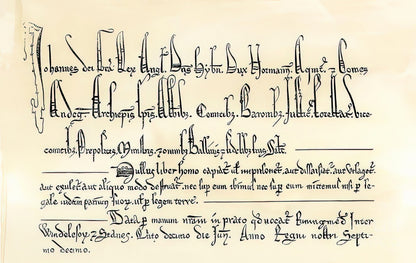 Johannes dei Gra Rex Angl. Dns Hybn. Dux Normann. Aqnit. z Comes
Andeg. Archiepis Epis. Abbibz. Comitibz. Baronibz Justic. forestar. vice-
comitibz. Prepositis. Ministris. z omnibz Ballivis z fidelibus suis Salt.
Nullus liber homo capiat. ut imprisonet. aut dissaisiat. aut utlaget.
aut exulet. aut aliquo modo destruat. nec sup eum ibimus nec sup eum mittemus nisi p le-
gale judicium parium suor. ut p legem terre.
Data p manum nram in prato quod vocat Runingmed Inter
Windelesor. z Stanes. Quito decimo die Jun. Anno Regni nostri Septi-
mo decimo.